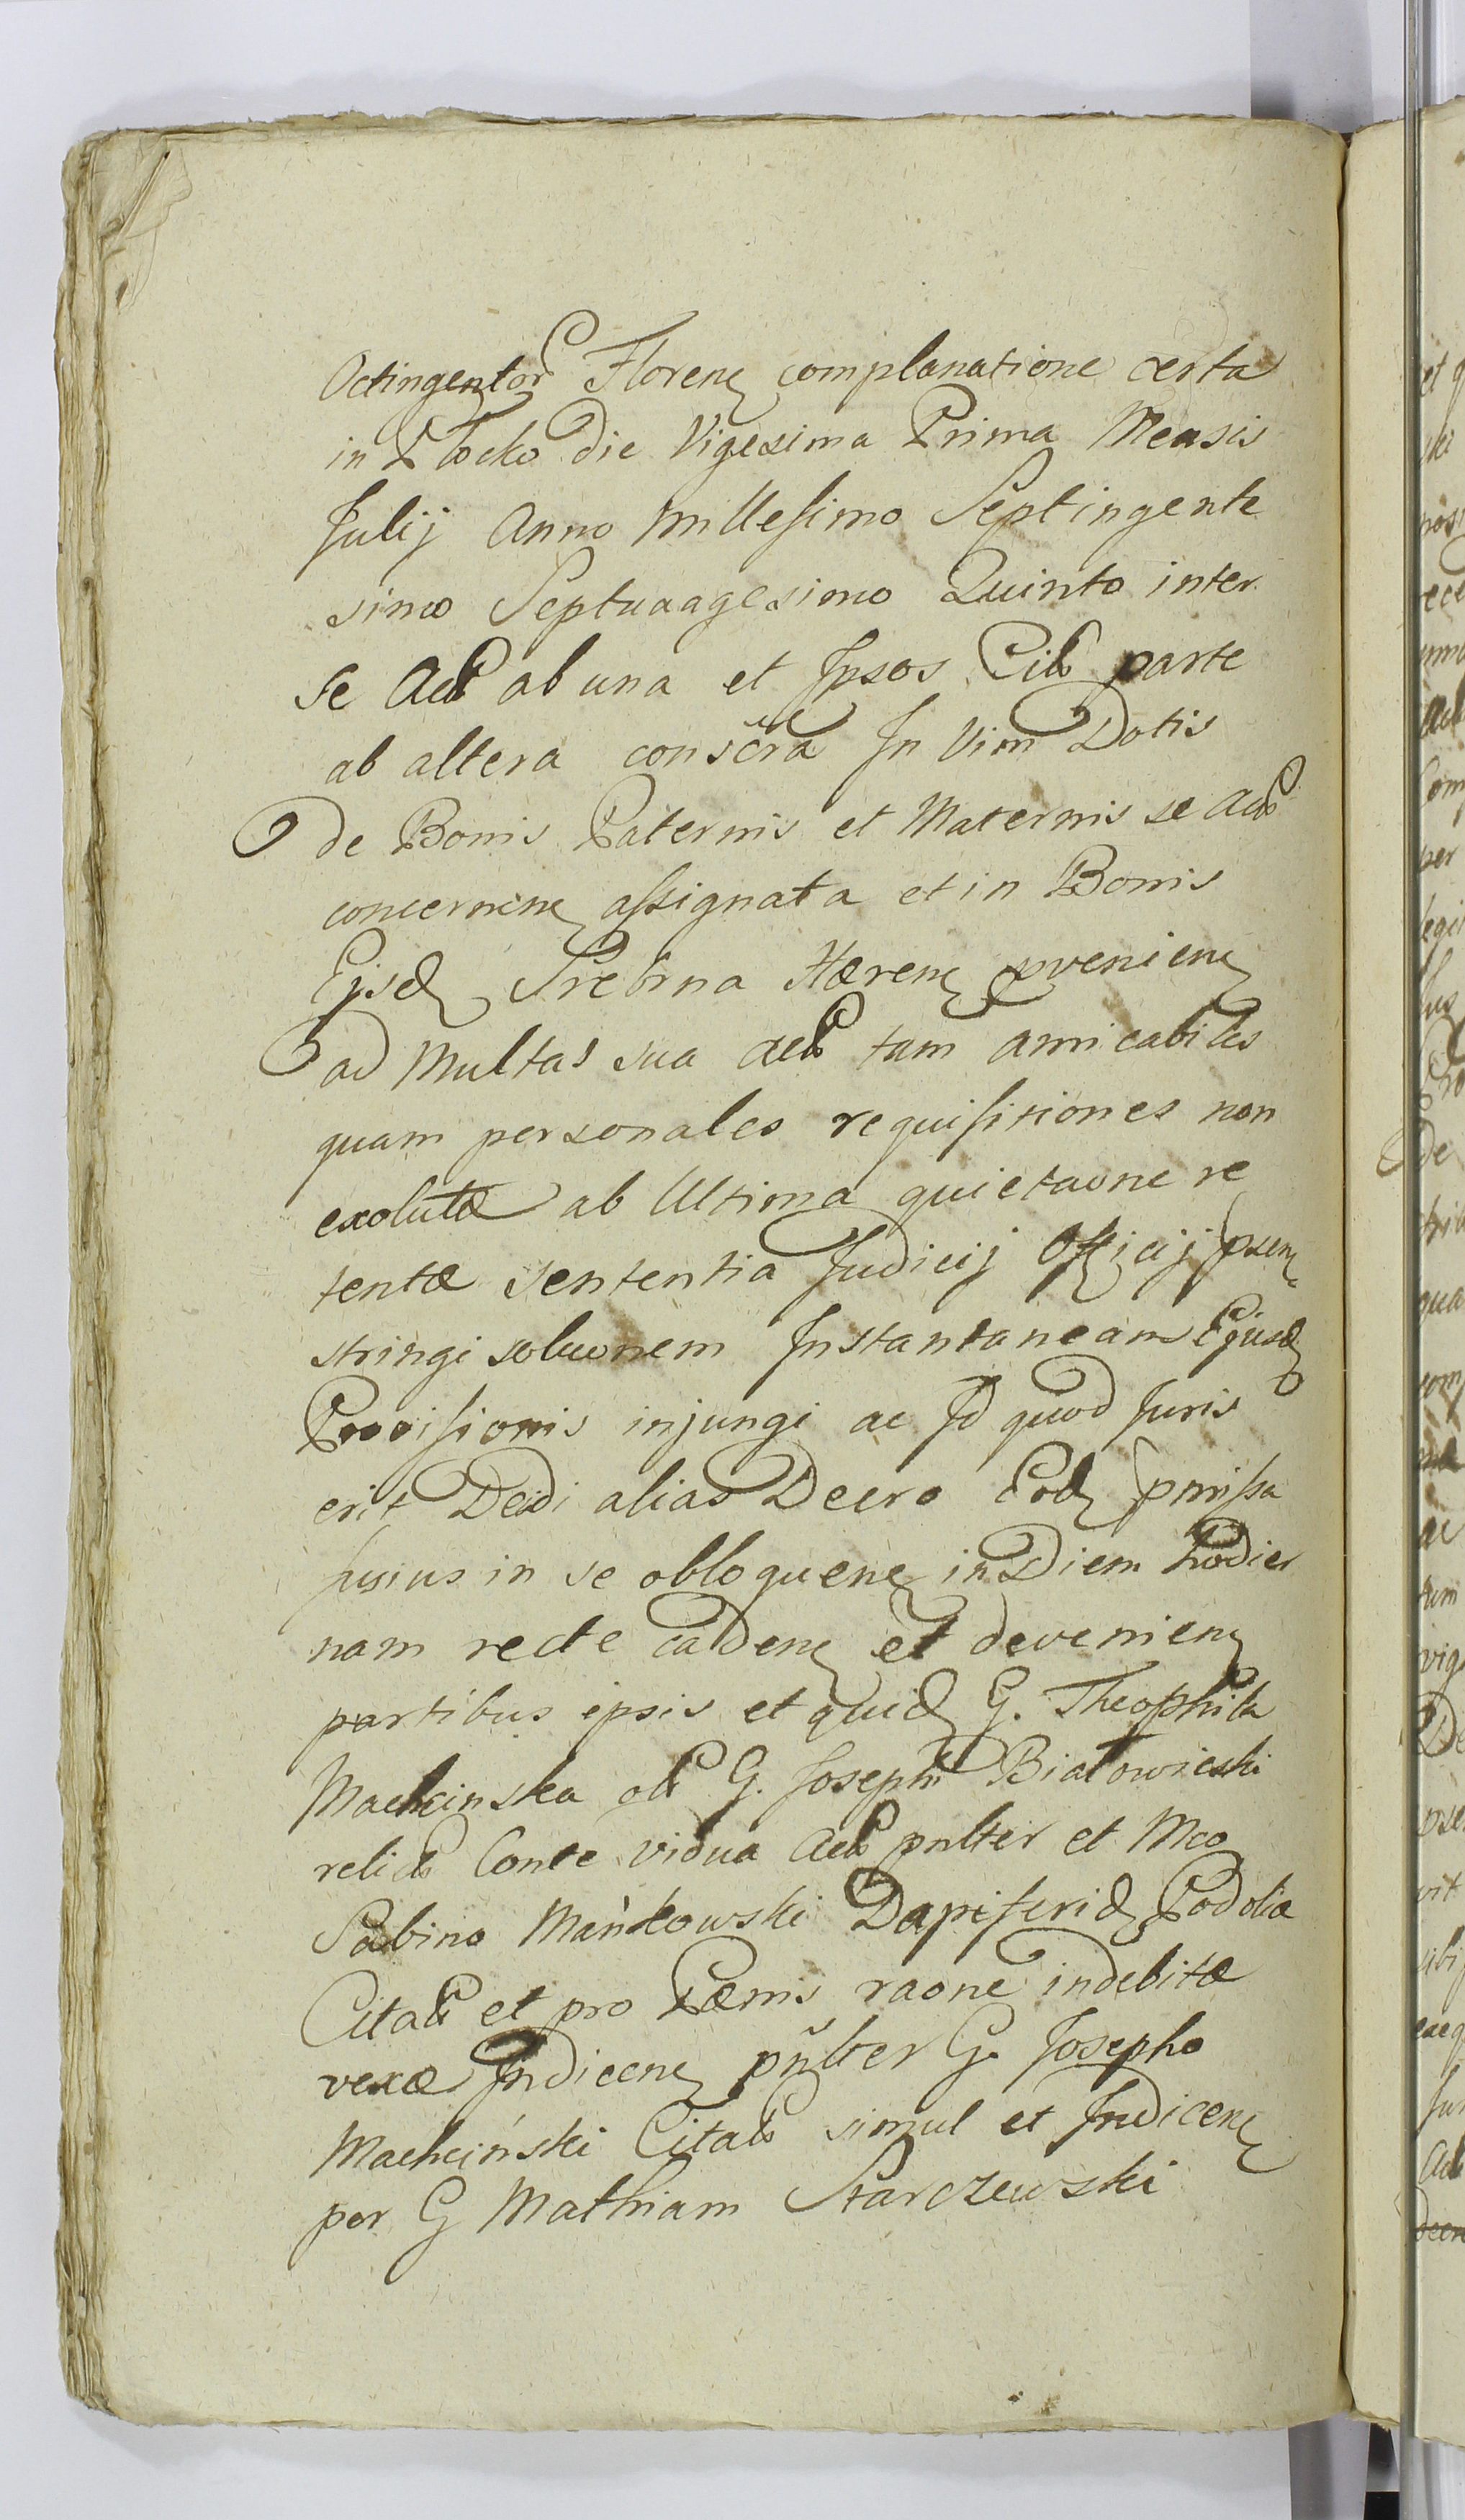 Octingentor Floren complanatione certa
in Płocko die Vigesima Prima Mensis
Julij Anno Millesimo Septingente
simo Septuaagesimo Quinto inter
se Act ab una et Ipsos Cit parte
ab altera conscra In Vim Dotis
de Bonis Paternis et Maternis se Act
concernen assignata et in Bonis
Ejsd Srebrna Hæren pvenien
ad Multas sua Act tam amicabiles
quam personales requisitiones non
exolutæ ab Ultima quietaone re
tentæ sententia Judicij Officij psen
stringi soluonem Instantaneam Ejusd
Provisionis injungi ac Id quod Juris
erit Decidi alias Decro Eod pmissa
fusius in se obloquen in Diem hodier
nam recte caden et devenien
partibus ipsis et quid G. Theophila
Machcinska olt G. Josephi Białowieski
relict Conte vidua Act pnlter et Mco
Sabino Mańkowski Dapiferid Podoliæ
Citat et pro Pænis raone indebitæ
vexæ Indicen pnlter G. Josepho
Machcinski Citat simul et Indicen
per G Mathiam Starczewski